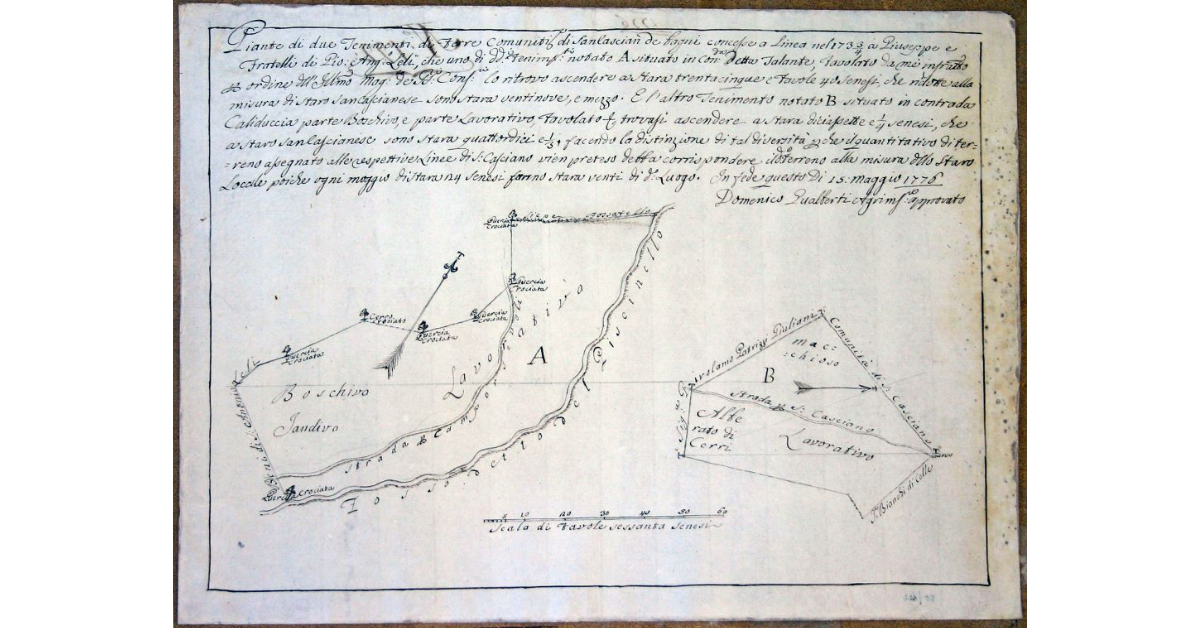 Piante di due Tenimenti di Terre Comuniti di Sanlascian de bagni concesse a Linea nel 173¾ a Giuseppe e
Fratelli di Gio: Ang. Leli, che uno di dd. Tenim. notato A situato in Con. detta Talante, Tavolato da me infratto
ordine dll' Illmo Mag. de Conf. lo ritrovo ascendere a Stara trentacinque e tavole 40 Senesi, che ridotte alla
misura di staro Sancascianese sono stara ventinove, e mezzo. E l'altro Tenimento notato B situato in contrada
Caliduccia parte Boschivo, e parte Lavorativo, tavolato trovasi ascendere a stara diciassette e ¼ senesi, che
a staro Sanlascianese sono stara quattordici e ⅓, facendo la distinzione di tal diversità che il quantitativo di ter=
=reno assegnato alle respettive Linee di S. Casciano vien preteso debba corrispondere il do terreno alla misura dllo Staro
Locale poiche ogni moggio di stara 24 Senesi fanno stara venti di do. Luogo. In fede questo Di 15: Maggio 1776
Domenico Gualberti Agrims. approvato
Quercia
Crociata
Fossatello
Quercia
Crociata
Cerro
Crociato
Quercia
Crociata
Quercia
Crociata
Quercia
Crociata
Boschivo
Tandivo
Lavorativo
A
Strada Camporsnoli
Fosso detto del Piscinello
Quercia Crociata
Sig. Girolamo Patrizj Giuliani
Comunità di S. Casciano
mac=
=chioso
B
Strada S. Casciano
Albe
rato di
Cerri
Lavorativo
Bianchi di Celle
5 10 20 30 40 50 60
Scala di Tavole sessanta Senesi